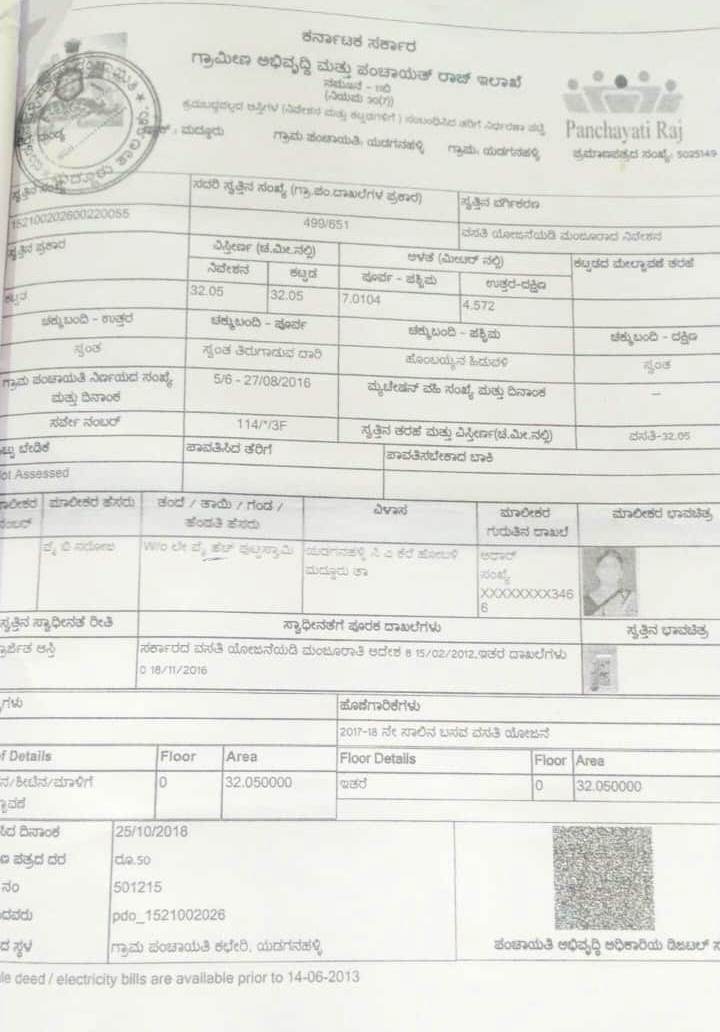 ಕರ್ನಾಟಕ ಸರ್ಕಾರ
ಗ್ರಾಮೀಣ ಅಭಿವೃದ್ಧಿ ಮತ್ತು ಪಂಚಾಯತ್ ರಾಜ್ ಇಲಾಖೆ
ನಮೂನೆ - 11ಬಿ
Panchayati Raj
ಮದ್ದೂರು ಗ್ರಾಮ ಪಂಚಾಯತಿ, ಯಡಗನಹಳ್ಳಿ ಗ್ರಾಮ, ಯಡಗನಹಳ್ಳಿ ಪ್ರಮಾಣಪತ್ರದ ಸಂಖ್ಯೆ: 5025149
ಸ್ವತ್ತಿನ ಸಂಖ್ಯೆ ಸದರಿ ಸ್ವತ್ತಿನ ಸಂಖ್ಯೆ (ಗ್ರಾ.ಪಂ.ದಾಖಲೆಗಳ ಪ್ರಕಾರ) ಸ್ವತ್ತಿನ ವರ್ಗೀಕರಣ
152100202600220055 499/651 ವಸತಿ ಯೋಜನೆಯಡಿ ಮಂಜೂರಾದ ನಿವೇಶನ
ಸ್ವತ್ತಿನ ಪ್ರಕಾರ ವಿಸ್ತೀರ್ಣ (ಚ.ಮೀ.ನಲ್ಲಿ) ಅಳತೆ (ಮೀಟರ್ ನಲ್ಲಿ) ಕಟ್ಟಡದ ಮೇಲ್ಛಾವಣಿ ತರಹೆ
ನಿವೇಶನ ಕಟ್ಟಡ ಪೂರ್ವ - ಪಶ್ಚಿಮ ಉತ್ತರ-ದಕ್ಷಿಣ
ಕಟ್ಟಡ 32.05 32.05 7.0104 4.572
ಚಕ್ಕುಬಂದಿ - ಉತ್ತರ ಚಕ್ಕುಬಂದಿ - ಪೂರ್ವ ಚಕ್ಕುಬಂದಿ - ಪಶ್ಚಿಮ ಚಕ್ಕುಬಂದಿ - ದಕ್ಷಿಣ
ಸ್ವಂತ ಸ್ವಂತ ತಿರುಗಾಡುವ ದಾರಿ ಹೊಂಬಯ್ಯನ ಹಿಡುವಳಿ ಸ್ವಂತ
ಗ್ರಾಮ ಪಂಚಾಯತಿ ನಿರ್ಣಯದ ಸಂಖ್ಯೆ ಮತ್ತು ದಿನಾಂಕ 5/6 - 27/08/2016 ಮ್ಯುಟೇಷನ್ ವಹಿ ಸಂಖ್ಯೆ ಮತ್ತು ದಿನಾಂಕ --
ಸರ್ವೇ ನಂಬರ್ 114/*/3F ಸ್ವತ್ತಿನ ತರಹೆ ಮತ್ತು ವಿಸ್ತೀರ್ಣ(ಚ.ಮೀ.ನಲ್ಲಿ) ವಸತಿ-32.05
ಬೇಡಿಕೆ ಪಾವತಿಸಿದ ತೆರಿಗೆ ಪಾವತಿಸಬೇಕಾದ ಬಾಕಿ
ot Assessed
ಮಾಲೀಕರ ಹೆಸರು ತಂದೆ / ತಾಯಿ / ಗಂಡ / ಹೆಂಡತಿ ಹೆಸರು ವಿಳಾಸ ಮಾಲೀಕರ ಗುರುತಿನ ದಾಖಲೆ ಮಾಲೀಕರ ಭಾವಚಿತ್ರ
ವೈ ಬಿ ಸರೋಜ W/o ಲೇ ವೈ ಹೆಚ್ ಪುಟ್ಟಸ್ವಾಮಿ ಯಡಗನಹಳ್ಳಿ ಸಿ ಎ ಕೆರೆ ಹೋಬಳಿ ಮದ್ದೂರು ತಾ ಆಧಾರ್ ಸಂಖ್ಯೆ XXXXXXXX3466
ಸ್ವತ್ತಿನ ಸ್ವಾಧೀನತೆ ರೀತಿ ಸ್ವಾಧೀನತೆಗೆ ಪೂರಕ ದಾಖಲೆಗಳು ಸ್ವತ್ತಿನ ಭಾವಚಿತ್ರ
ಆಸ್ತಿ ಸರ್ಕಾರದ ವಸತಿ ಯೋಜನೆಯಡಿ ಮಂಜೂರಾತಿ ಆದೇಶ 8 15/02/2012,ಇತರೆ ದಾಖಲೆಗಳು
0 18/11/2016
ಹೊಣೆಗಾರಿಕೆಗಳು
2017-18 ನೇ ಸಾಲಿನ ಬಸವ ವಸತಿ ಯೋಜನೆ
f Details Floor Area Floor Details Floor Area
0 32.050000 ಇತರೆ 0 32.050000
ದಿನಾಂಕ 25/10/2018
ಪತ್ರದ ದರ ರೂ.50
ನಂ 501215
pdo_1521002026
ಸ್ಥಳ ಗ್ರಾಮ ಪಂಚಾಯತಿ ಕಛೇರಿ, ಯಡಗನಹಳ್ಳಿ ಪಂಚಾಯತಿ ಅಭಿವೃದ್ಧಿ ಅಧಿಕಾರಿಯ ಡಿಜಿಟಲ್
le deed / electricity bills are available prior to 14-06-2013